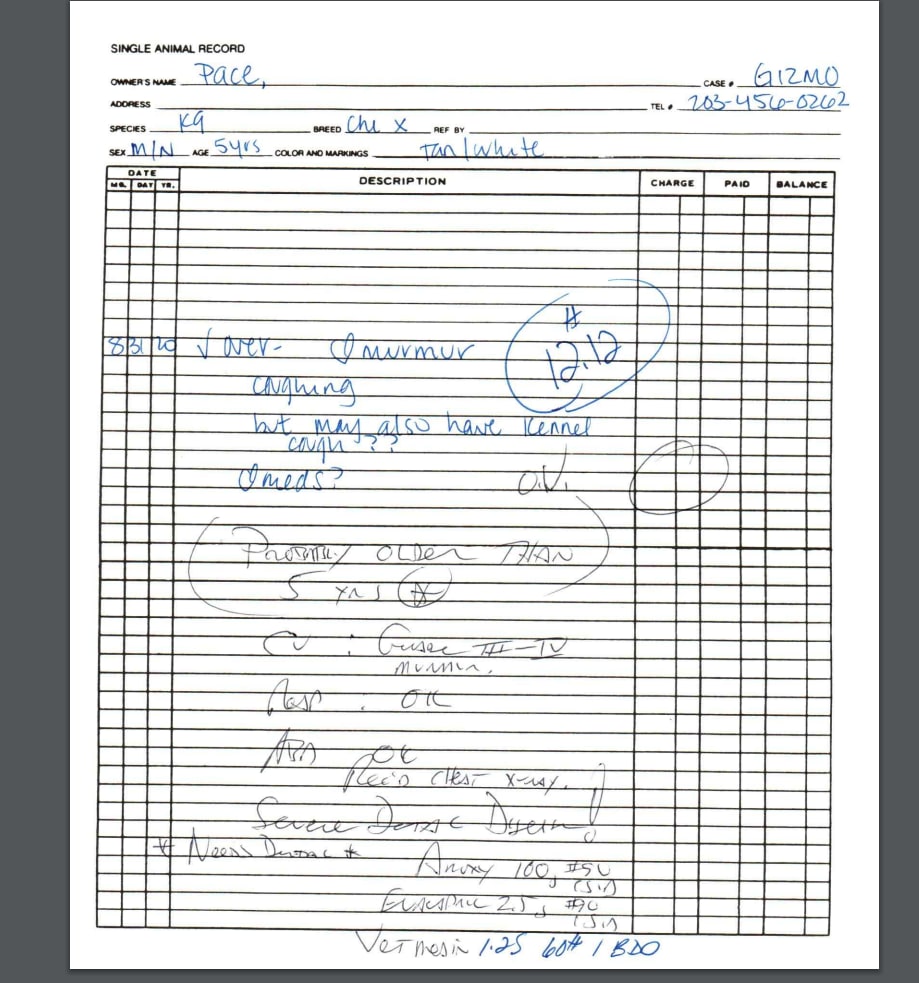 SINGLE ANIMAL RECORD
OWNER'S NAME Pace, CASE # GIZMO
ADDRESS TEL # 203-456-0262
SPECIES K9 BREED Chi X REF BY
SEX M/N AGE 5yrs COLOR AND MARKINGS Tan/white
DATE DESCRIPTION CHARGE PAID BALANCE
MO. DAY YR.
#
8 31 20 √ over - murmur 12.12
coughing
but may also have Kennel
cough??
meds? O.V.
PROBABLY OLDER THAN
5 yrs
CV : GRADE III-IV
murmur.
Resp : OK
ABD OK
Rec'd CHEST X-ray.
Severe Dental !
* Needs Dental *
Amoxy 100, #50
Enalapril 2.5, #90
Vetmedin 1.25 60# 1 BDO